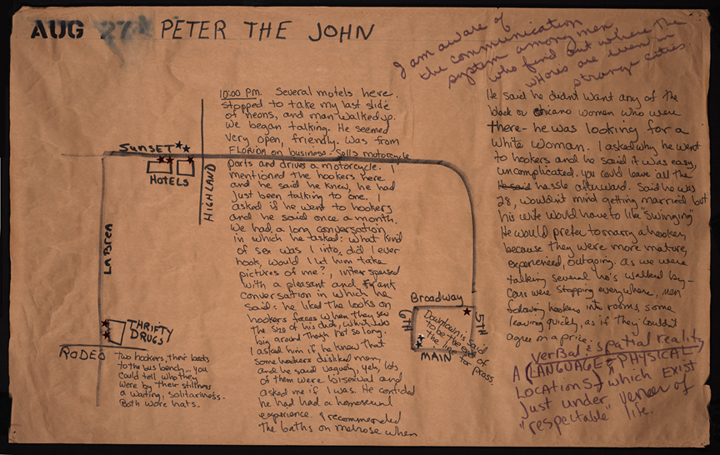 AUG 27 PETER THE JOHN
I am aware of
the communication
system among men
who find out where the
whores are even in
strange cities.
SUNSET
HOTELS
HIGHLAND
LA BREA
THRIFTY
DRUGS
RODEO
Two hookers, their backs
to the bus bench - you
could tell who they
were by their stillness
a waiting, solitariness.
Both wore hats.
10:00 PM. Several motels here.
Stopped to take my last slide
of neons, and man walked up.
We began talking. He seemed
very open, friendly. Was from
FLORIDA on business - sells motorcycle
parts and drives a motorcycle. I
mentioned the hookers here
and he said he knew, he had
just been talking to one. I
asked if he went to hookers
and he said once a month.
We had a long conversation
in which he asked: What kind
of sex was I into, did I ever
hook, would I let him take
pictures of me?, interspersed
with a pleasant and
conversation in which he
said: he liked the looks on
hookers faces when they saw
the size of his dick, which was
big around then, not so long.
I asked him if he knew that
some hookers disliked men,
and he said vaguely, yeh, lots
of them were bisexual and
asked me if I was. He confided
he had had a homosexual
experience. I recommended
the baths on melrose when
Broadway
6TH
5TH
MAIN
Downtown is said
to be the end of
the line for pross.
He said he didn't want any of the
black or chicano women who were
there - he was looking for a
white woman. I asked why he went
to hookers and he said it was easy,
uncomplicated. you could leave all the
He said hassle afterward. Said he was
28, wouldn't mind getting married but
his wife would have to like swinging.
He would prefer to marry a hooker,
because they were more mature,
experienced, outgoing. as we were
talking several ho's walked by -
Cars were stopping everywhere, men
following hookers into rooms, some
leaving quickly, as if they couldn't
agree on a price.
Verbal & spatial reality
A LANGUAGE & PHYSICAL
LOCATIONS which EXIST
Just under veneer of
"respectable" life.